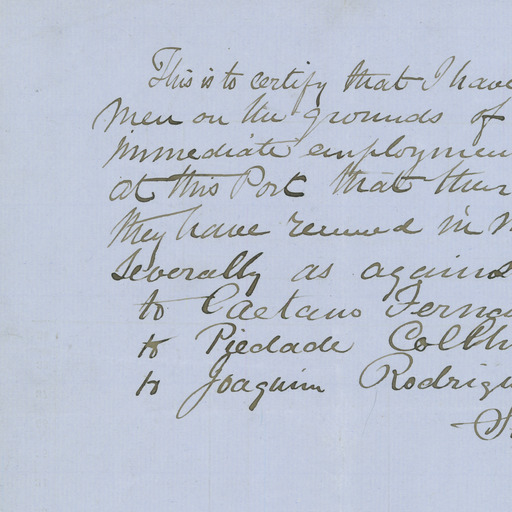 This is to certify that I have
men on the grounds of
immediate employmen
at this Port that their
they have received in
severally as agains
to Caetano Ferna
to Piedade ColLh
to Joaquim Rodrigu